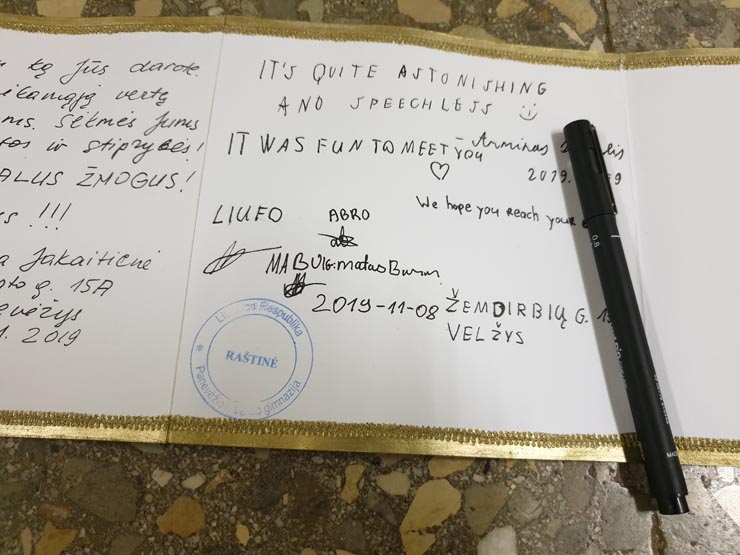 ką Jūs darote.
vertę
Sėkmės Jums
ir stiprybės!
ŽMOGUS!
!!!
Jakaitienė
g. 15A
2019
IT'S QUITE ASTONISHING
AND SPEECHLESS :)
IT WAS FUN TO MEET YOU
♡
Arminas
2019.
We hope you reach your
LIUFO ABRO
MABU IG: matas
2019-11-08 ŽEMDIRBIŲ G.
VELŽYS
Respublika
RAŠTINĖ
gimnazija
0.8